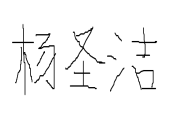 杨圣洁